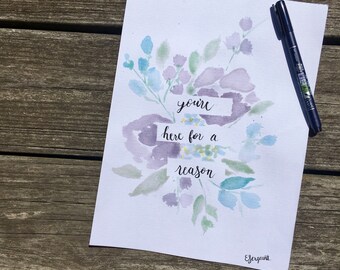 you're
here for a
reason